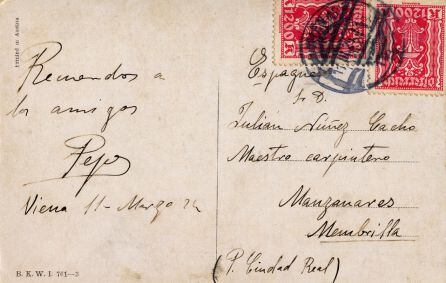 Printed in Austria
Recuerdos a
los amigos
Pepe
Viena 11-Marzo 24
B. K. W. I. 761-3
K1200K
K1200K
Österreich
Espagne
S. D.
Julián Núñez Cacho
Maestro carpintero
Manzanares
Membrilla
(P. Ciudad Real)